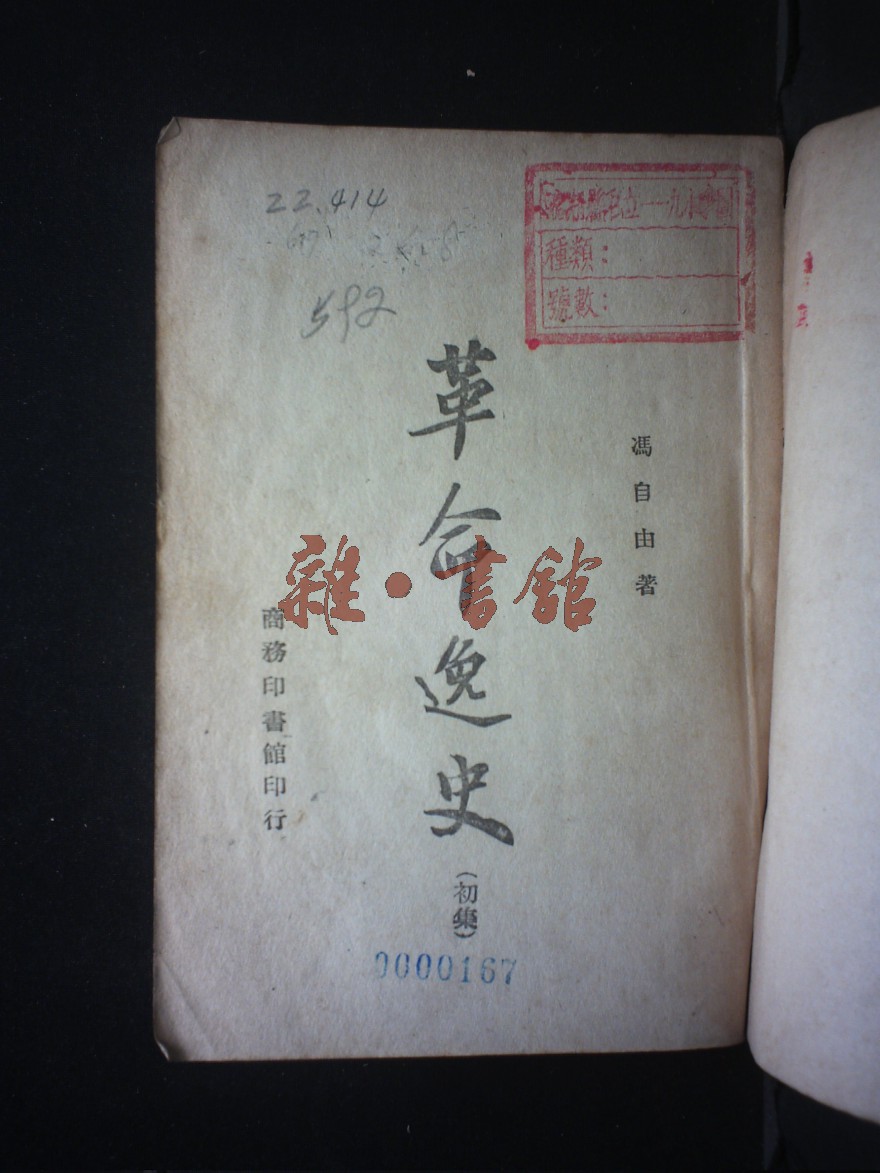 22.414
592
種類：
號數：
馮自由著
革命逸史
（初集）
商務印書館印行
雜·書館
0000167